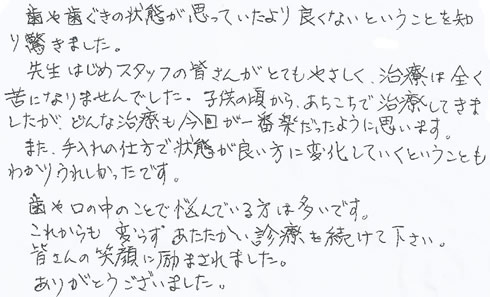 歯や歯ぐきの状態が思っていたより良くないということを知
り驚きました。
先生はじめスタッフの皆さんがとてもやさしく、治療は全く
苦になりませんでした。子供の頃から、あちこちで治療してきま
したが、どんな治療も今回が一番楽だったように思います。
また、手入れの仕方で状態が良い方に変化していくということも
わかりうれしかったです。
歯や口の中のことで悩んでいる方は多いです。
これからも変らずあたたかい診療を続けて下さい。
皆さんの笑顔に励まされました。
ありがとうございました。